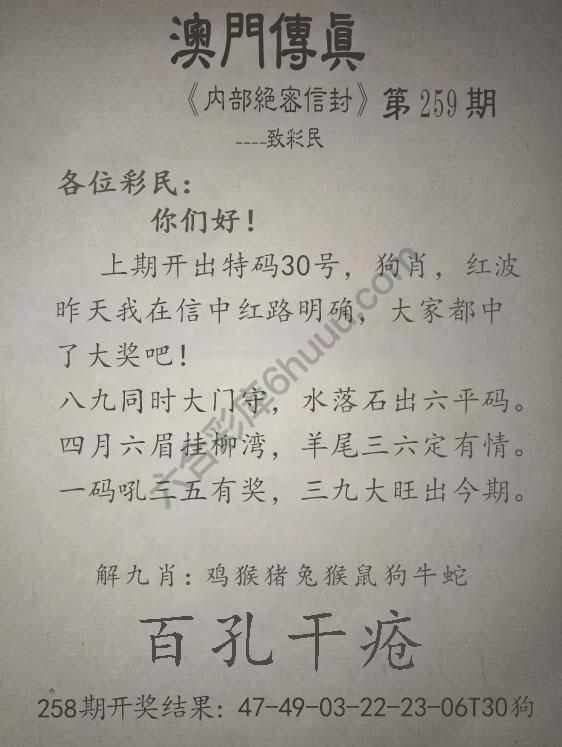 澳門傳眞
《内部絕密信封》第259期
----致彩民
各位彩民：
你们好！
上期开出特码30号，狗肖，红波
昨天我在信中红路明确，大家都中
了大奖吧！
八九同时大门守，水落石出六平码。
四月六眉挂柳湾，羊尾三六定有情。
一码吼三五有奖，三九大旺出今期。
解九肖：鸡猴猪兔猴鼠狗牛蛇
百孔干疮
258期开奖结果：47-49-03-22-23-06T30狗
六合彩库6huuu.com